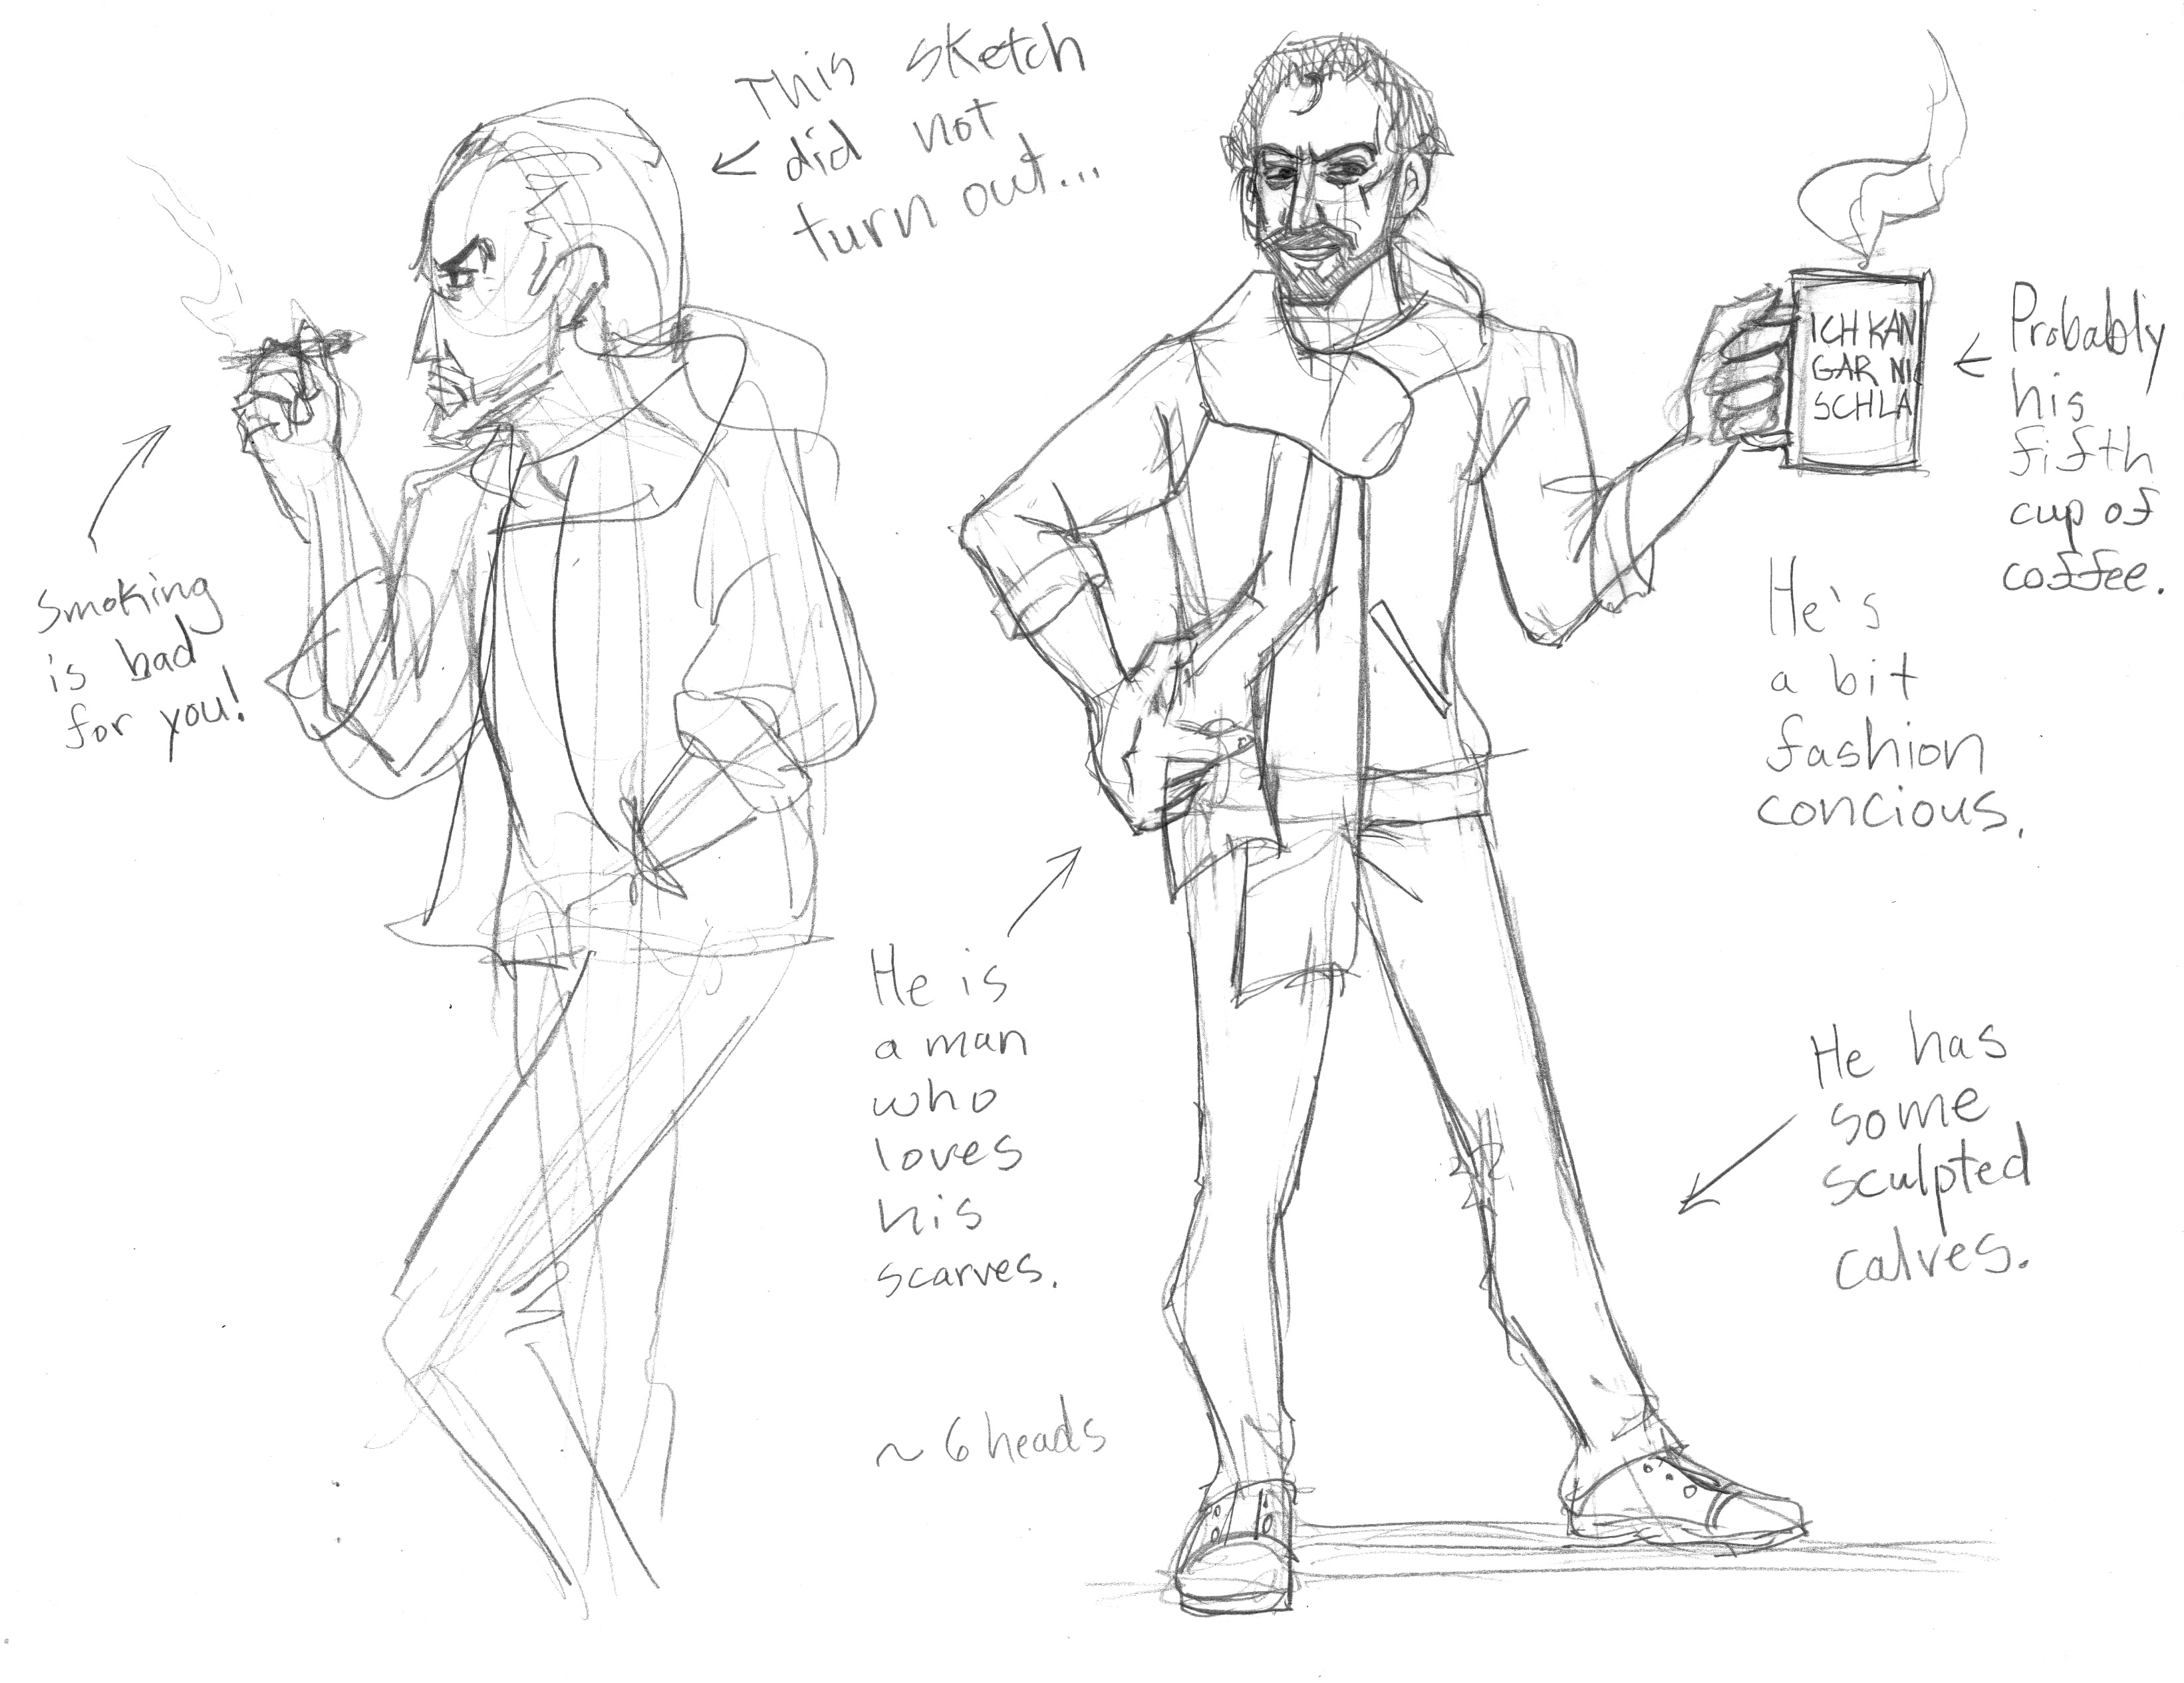 This sketch
did not
turn out...
Smoking
is bad
for you!
ICH KAN
GAR NI
SCHLA
Probably
his
fifth
cup of
coffee.
He's
a bit
fashion
concious.
He is
a man
who
loves
his
scarves.
He has
some
sculpted
calves.
~ 6 heads